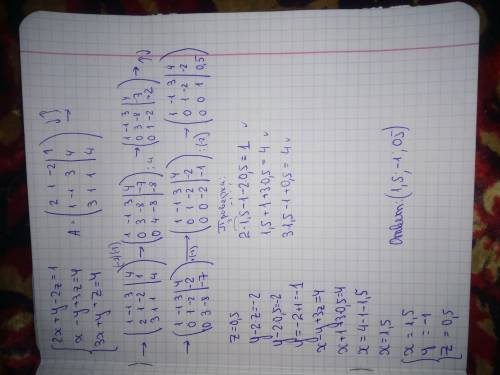 2x+y-2z=1
x-y+3z=4
3x+y+z=4
A = ( 2 1 -2 | 1
1 -1 3 | 4
3 1 1 | 4 ) →
→ ( 1 -1 3 | 4
2 1 -2 | 1
3 1 1 | 4 )
→ ( 1 -1 3 | 4
0 3 -8 | -7
0 4 -8 | -8 ) :4
→ ( 1 -1 3 | 4
0 3 -8 | 7
0 1 -2 | -2 ) →
→ ( 1 -1 3 | 4
0 1 -2 | -2
0 3 -8 | -7 )
→ ( 1 -1 3 | 4
0 1 -2 | -2
0 0 -2 | -1 ) :(-2)
→ ( 1 -1 3 | 4
0 1 -2 | -2
0 0 1 | 0,5 )
z=0,5
y-2z=-2
y-2·0,5=-2
y=-2+1=-1
x-y+3z=4
x+1+3·0,5=4
x=4-1-1,5
x=1,5
x=1,5
y=-1
z=0,5
Проверка.
2·1,5-1-2·0,5=1 v
1,5+1+3·0,5=4 v
3·1,5-1+0,5=4 v
Ответ: (1,5; -1; 0,5)